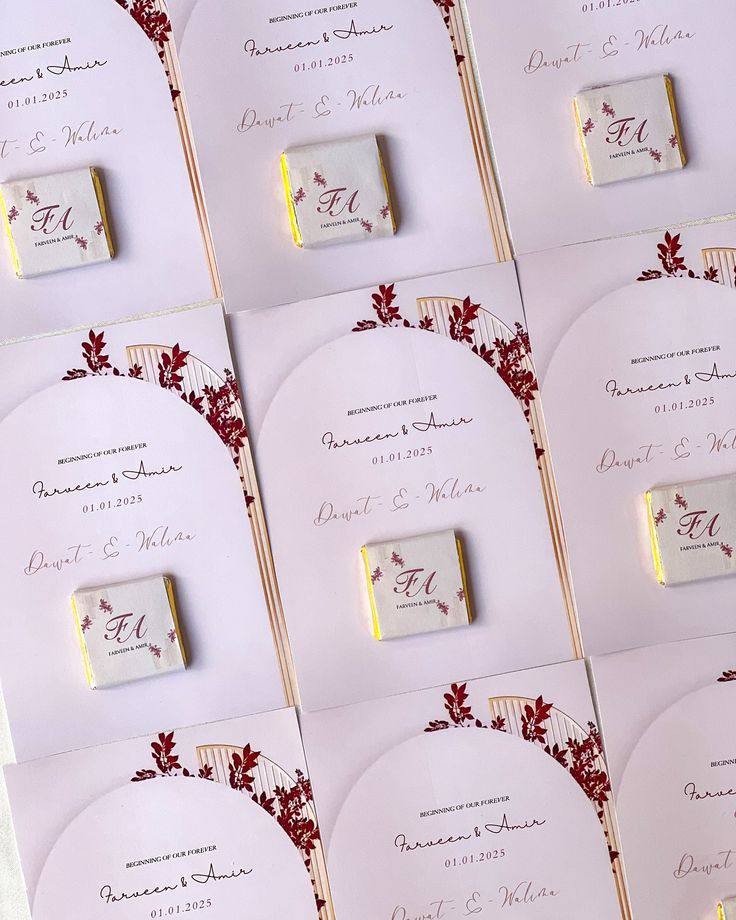 NING OF OUR FOREVER
een & Amir
01.01.2025
t - E - Walima
FA
FARVEEN & AMIR
BEGINNING OF OUR FOREVER
Farveen & Amir
01.01.2025
Dawat - E - Walima
FA
FARVEEN & AMIR
01.01.2025
Dawat - E - Walima
FA
FARVEEN & AMIR
BEGINNING OF OUR FOREVER
Farveen & Amir
01.01.2025
Dawat - E - Walima
FA
FARVEEN & AMIR
BEGINNING OF OUR FOREVER
Farveen & Amir
01.01.2025
Dawat - E - Walima
FA
FARVEEN & AMIR
BEGINNING OF OUR FOREVER
Farveen & Amir
01.01.2025
Dawat - E - Wali
FA
FARVEEN & AMIR
BEGINNING OF OUR FOREVER
Farveen & Amir
01.01.2025
BEGINNING OF OUR FOREVER
Farveen & Amir
01.01.2025
Dawat - E - Walima
BEGINN
Farve
01
Dawat